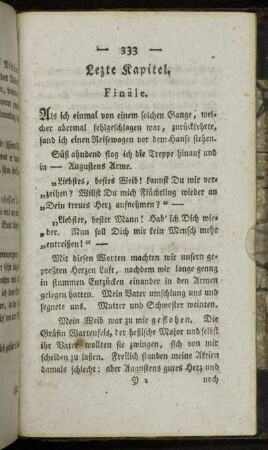 — 333 —
Lezte Kapitel.
Finäle.
Als ich einmal von einem solchen Gange, wel-
cher abermal fehlgeschlagen war, zurückkehrte,
fand ich einen Reisewagen vor dem Hause stehen.
Süß ahndend flog ich die Treppe hinauf und
in — Augustens Arme.
„Liebstes, bestes Weib! kannst Du mir ver-
„zeihen? Willst Du mich Flüchtling wieder an
„Dein treues Herz aufnehmen?“ —
„Liebster, bester Mann! Hab' ich Dich wie-
der. Nun soll Dich mir kein Mensch mehr
„entreißen!“ —
Mit diesen Worten machten wir unsern ge-
preßten Herzen Luft, nachdem wir lange genug
in stummen Entzücken einander in den Armen
gelegen hatten. Mein Vater umschlung uns und
segnete uns. Mutter und Schwester weinten.
Mein Weib war zu mir geflohen. Die
Gräfin Wartenfels, der hessische Major und selbst
ihr Vater wollten sie zwingen, sich von mir
scheiden zu laßen. Freilich standen meine Aktien
damals schlecht; aber Augustens gutes Herz und
Y 2
noch